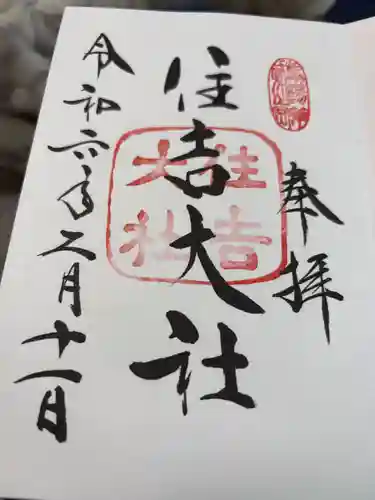 奉拝
住吉大社
住吉
大社
令和六年二月十一日